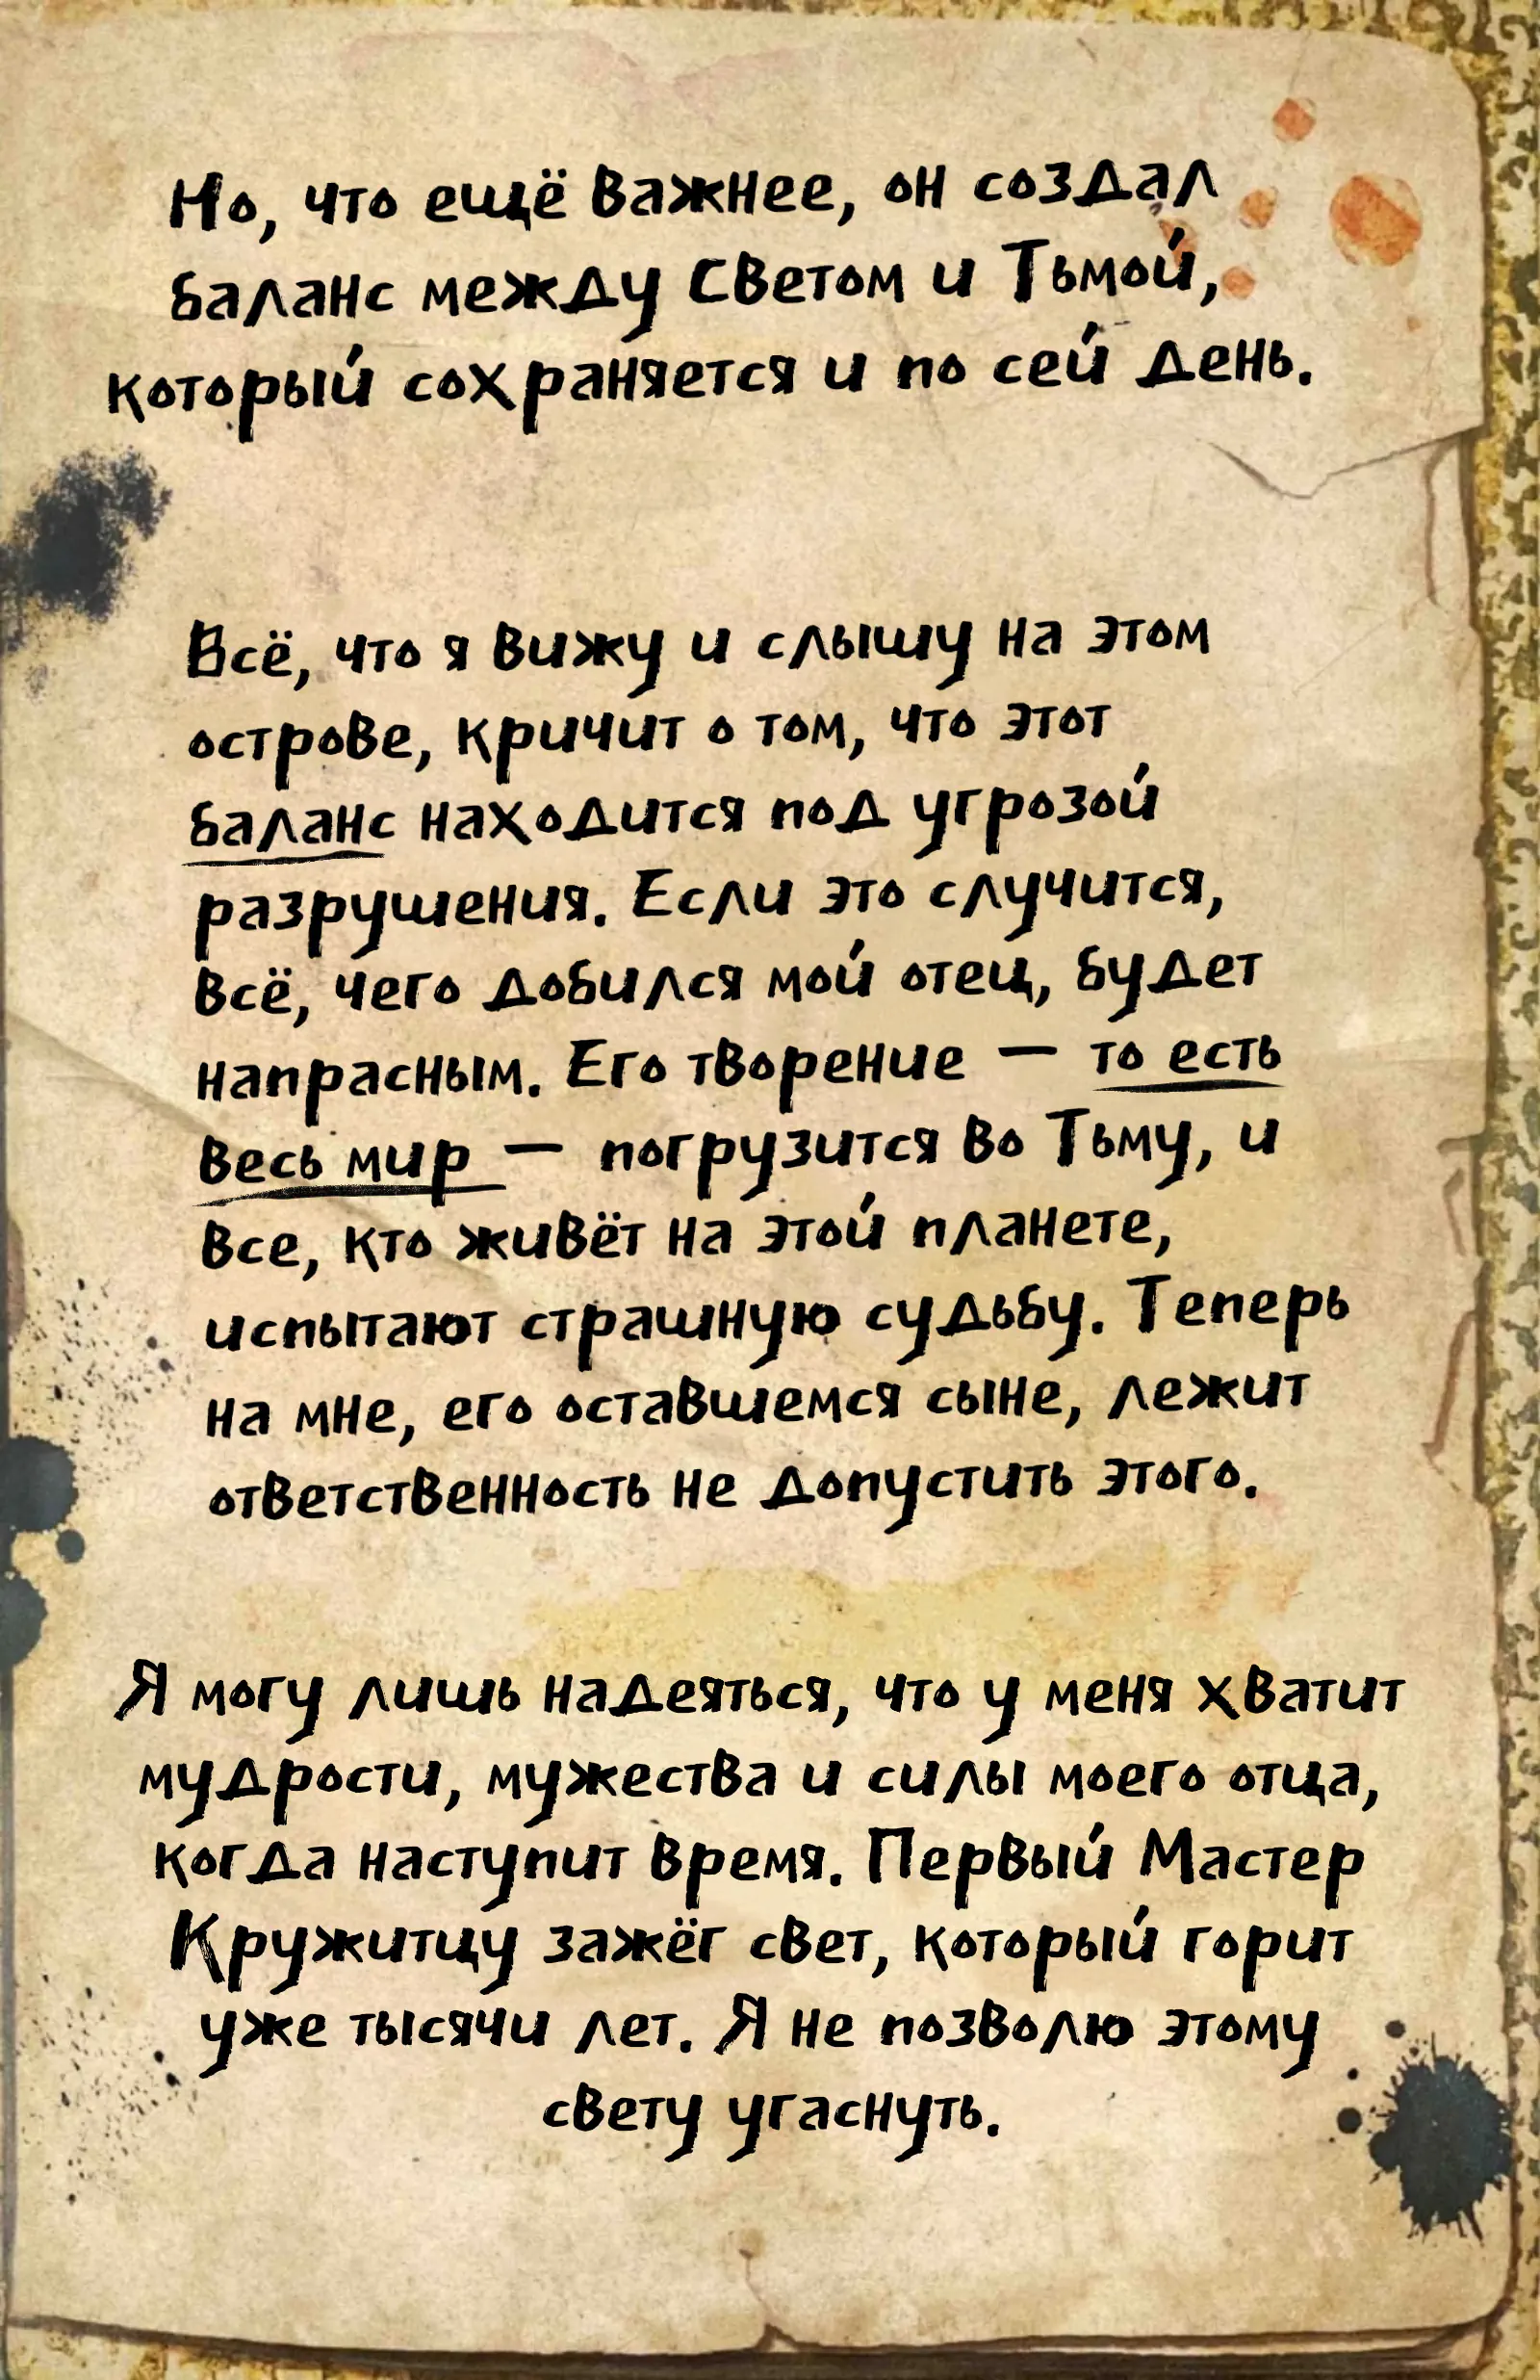 Но, что ещё важнее, он создал
баланс между Светом и Тьмой,
который сохраняется и по сей день.
Всё, что я вижу и слышу на этом
острове, кричит о том, что этот
баланс находится под угрозой
разрушения. Если это случится,
всё, чего добился мой отец, будет
напрасным. Его творение — то есть
весь мир — погрузится во Тьму, и
все, кто живёт на этой планете,
испытают страшную судьбу. Теперь
на мне, его оставшемся сыне, лежит
ответственность не допустить этого.
Я могу лишь надеяться, что у меня хватит
мудрости, мужества и силы моего отца,
когда наступит время. Первый Мастер
Кружитцу зажёг свет, который горит
уже тысячи лет. Я не позволю этому
свету угаснуть.